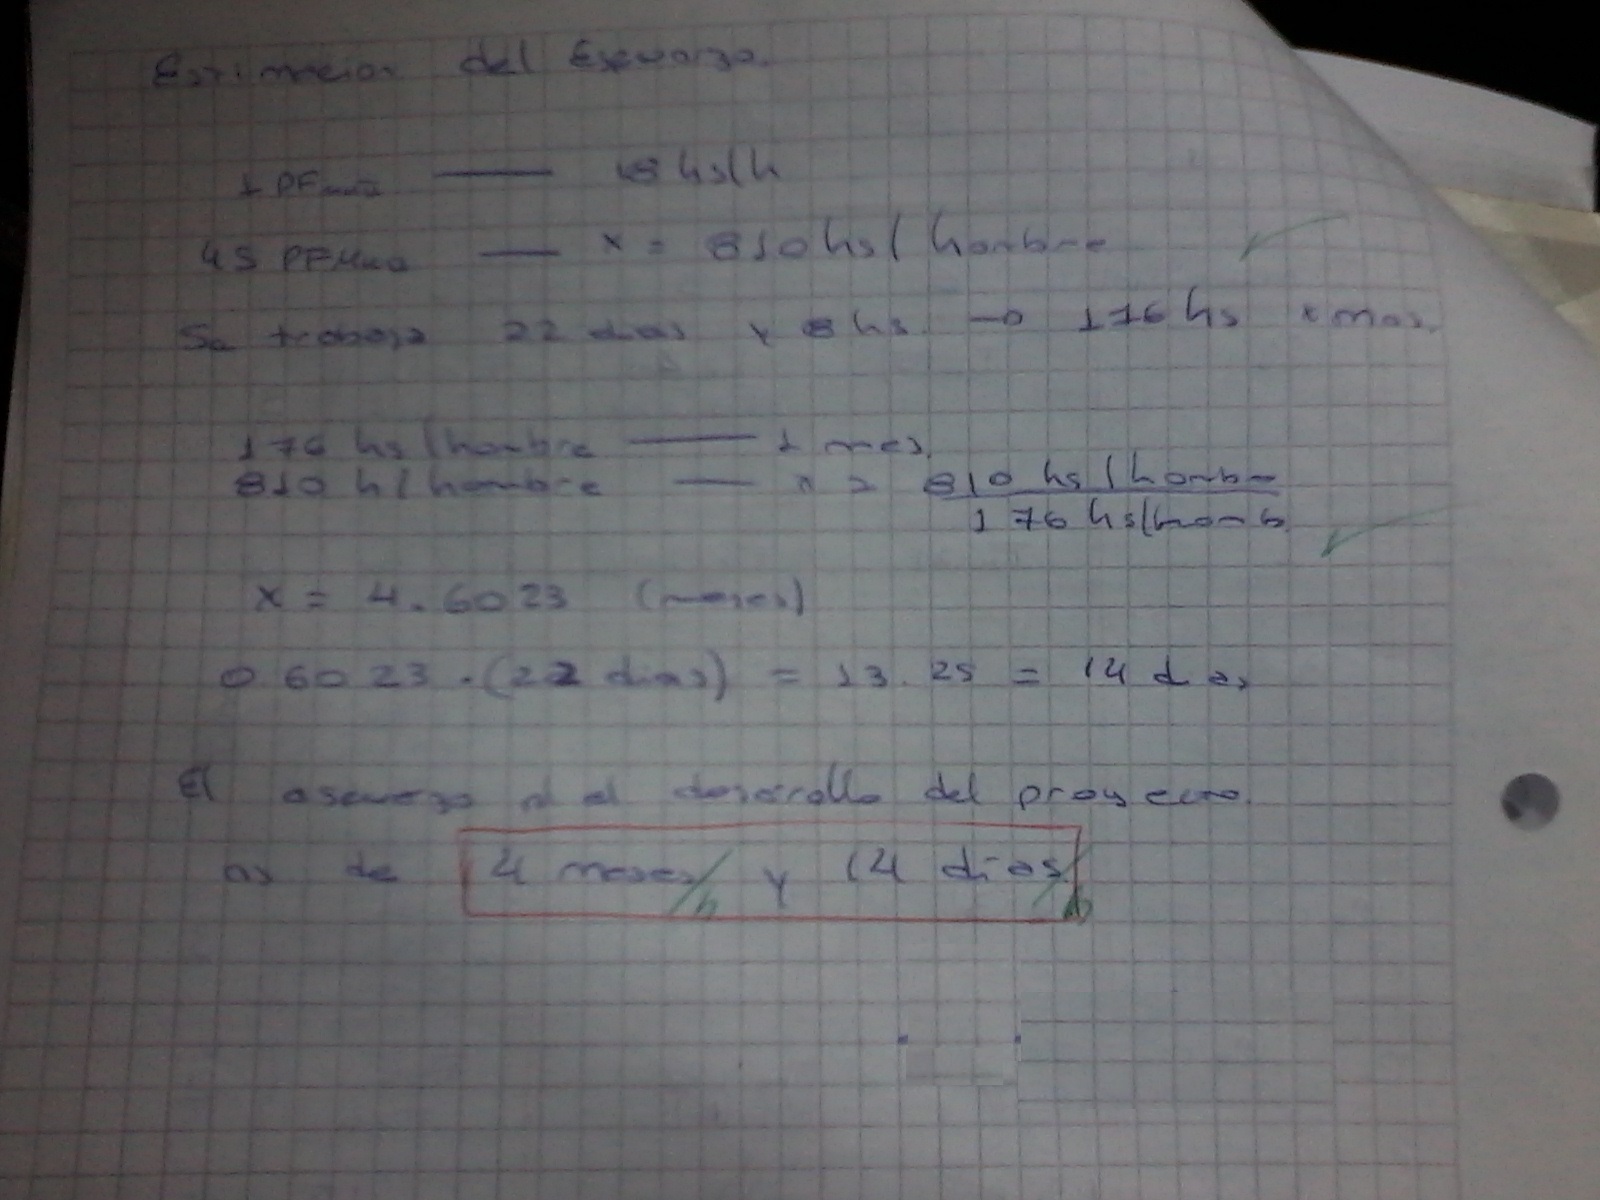 Estimacion del Esfuerzo.
1 PF —— 18 hs/h
45 PF — x = 810 hs/hombre
Se trabaja 22 dias y 8 hs. → 176 hs x mes.
176 hs/hombre —— 1 mes.
810 h/hombre — x = 810 hs/hombre
176 hs/homb.
x = 4.6023 (meses)
0.6023 · (22 dias) = 13.25 = 14 dias
El esfuerzo del desarrollo del proyecto
es de 4 meses/h y 14 dias/h